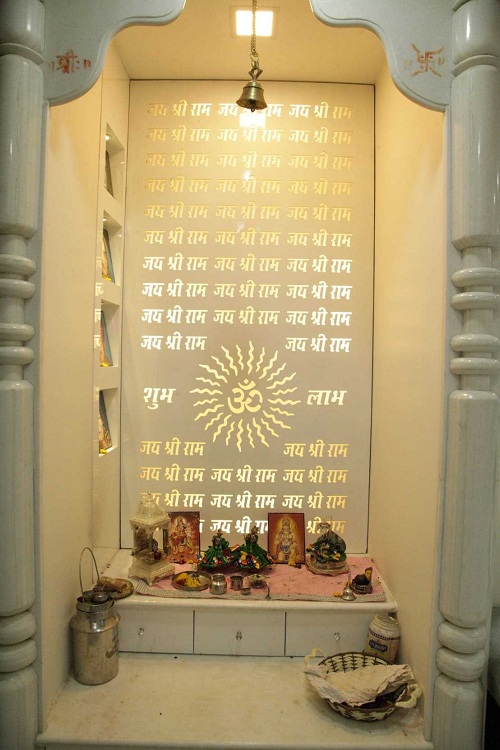 श्री
जय श्री राम जय श्री राम जय श्री राम
जय श्री राम जय श्री राम जय श्री राम
जय श्री राम जय श्री राम जय श्री राम
जय श्री राम जय श्री राम जय श्री राम
जय श्री राम जय श्री राम जय श्री राम
जय श्री राम जय श्री राम जय श्री राम
जय श्री राम जय श्री राम जय श्री राम
जय श्री राम जय श्री राम जय श्री राम
जय श्री राम जय श्री राम जय श्री राम
जय श्री राम जय श्री राम
शुभ ॐ लाभ
जय श्री राम जय श्री राम
जय श्री राम जय श्री राम जय श्री राम
जय श्री राम जय श्री राम जय श्री राम
जय श्री राम जय श्री राम